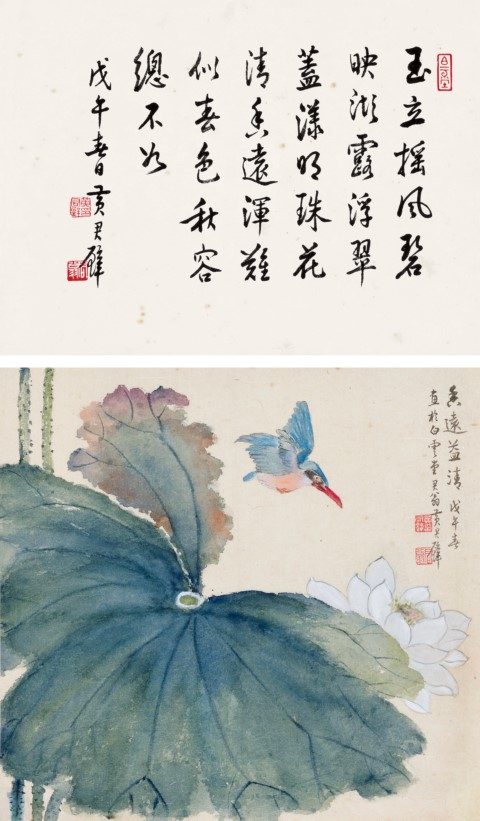 玉立搖風碧
映湖露浮翠
蓋漾明珠花
清香遠渾難
似春色秋容
總不如
戊午春日黃君璧
香遠益清 戊午春
畫於白雲堂君翁黃君璧